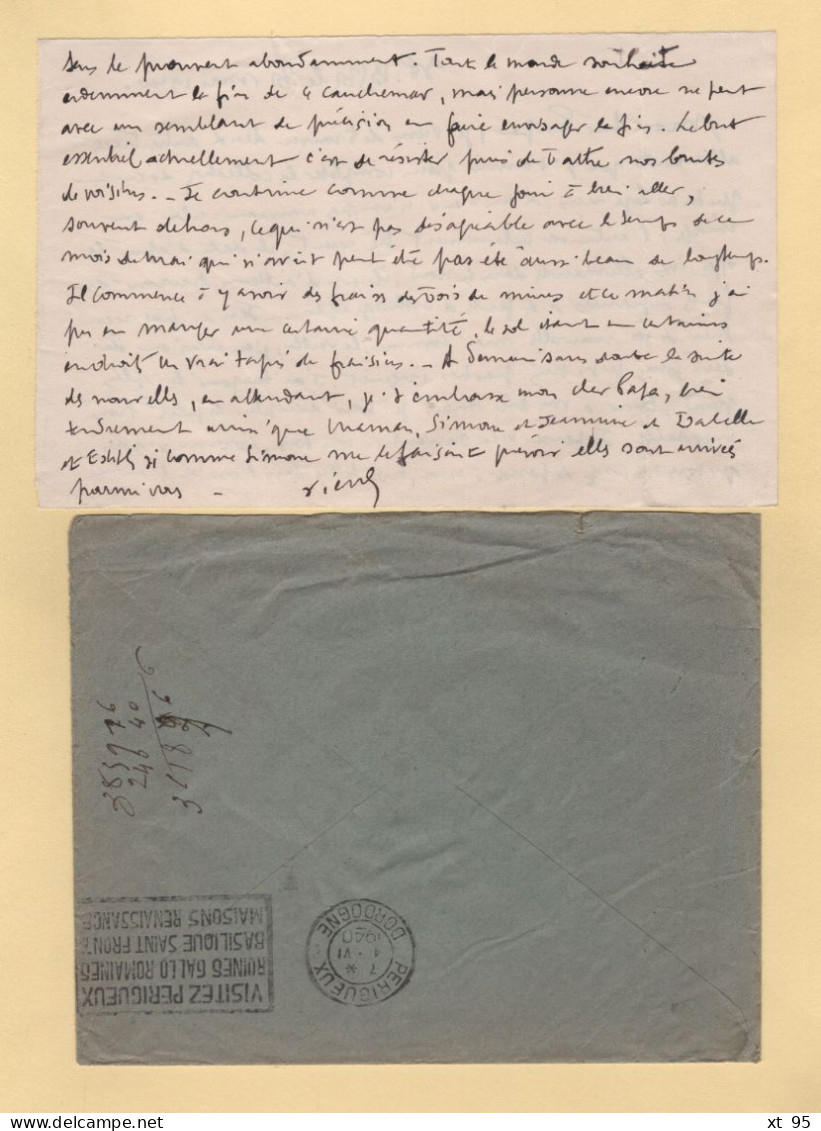 sens le prouvent abondamment. Tout le monde souhaite
ardemment la fin de ce cauchemar, mais personne encore ne peut
avec un semblant de précision en faire envisager la fin. Le but
essentiel actuellement c'est de résister puis de battre nos brutes
de voisins. - Je continue comme chaque jour à bien aller,
souvent dehors, ce qui n'est pas désagréable avec le temps de ce
mois de mai qui n'avait peut être pas été aussi beau de longtemps.
Il commence à y avoir des fraises des bois de mûres et ce matin j'ai
pu en manger une certaine quantité, le sol étant en certains
endroits un vrai tapis de fraisiers. - A demain sans doute la suite
des nouvelles, en attendant, je t'embrasse mon cher Papa, bien
tendrement ainsi que Maman, Simone et Jeannine et Isabelle
et Edith si comme Simone me le faisait prévoir elles sont arrivées
parmi vous -
3859 76
246 40
VISITEZ PERIGUEUX
RUINES GALLO ROMAINES
BASILIQUE SAINT FRONT
MAISONS RENAISSANCE
PERIGUEUX
7 *
1 · VI
1940
DORDOGNE
xt 95